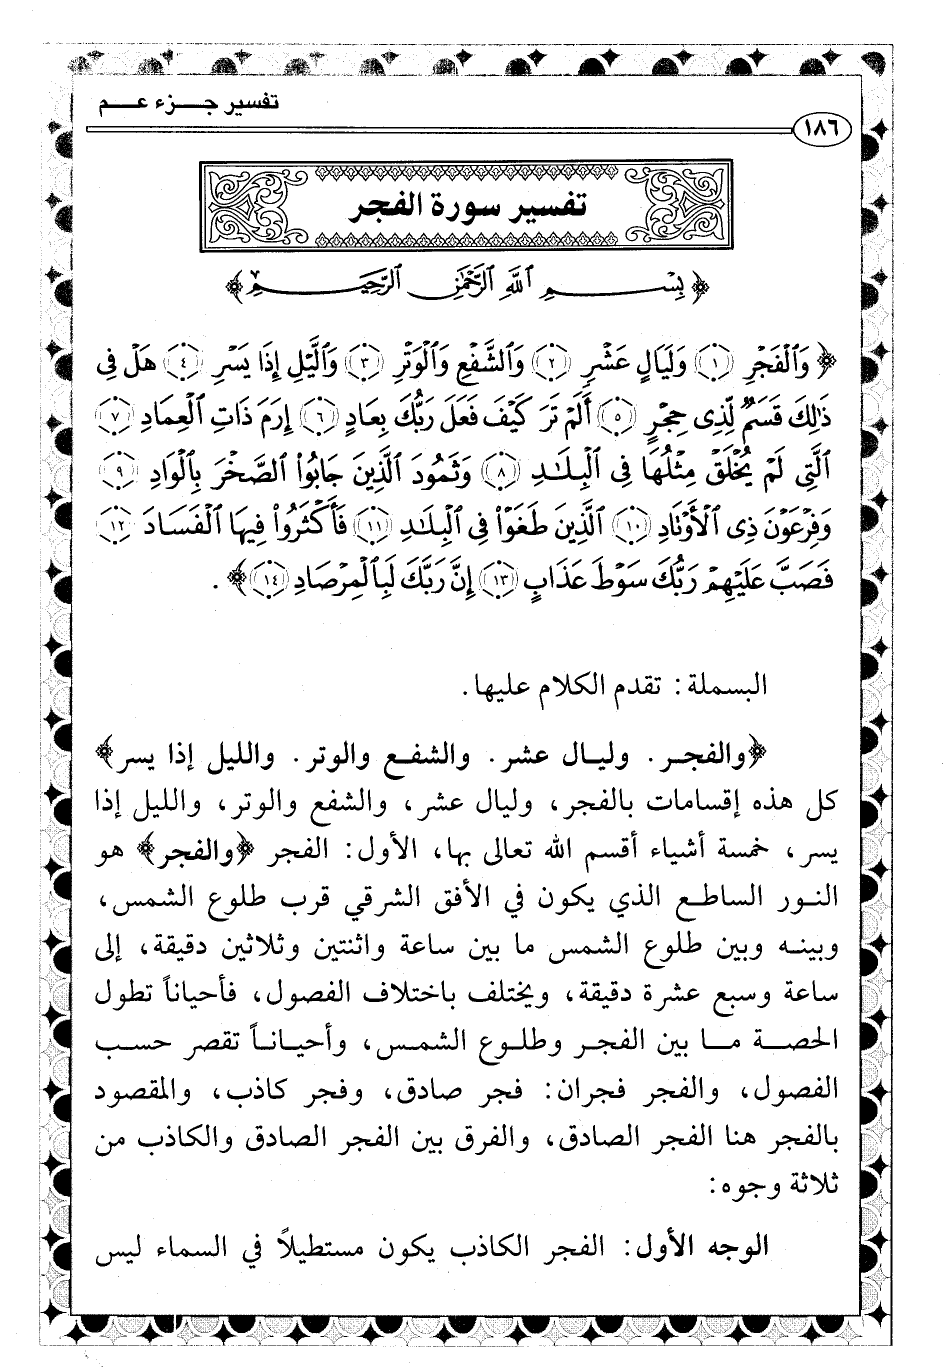 تفسير جزء عم
١٨٦
تفسير سورة الفجر
﴿بِسْمِ ٱللَّهِ ٱلرَّحْمَٰنِ ٱلرَّحِيمِ﴾
﴿وَٱلْفَجْرِ ۝١ وَلَيَالٍ عَشْرٍ ۝٢ وَٱلشَّفْعِ وَٱلْوَتْرِ ۝٣ وَٱلَّيْلِ إِذَا يَسْرِ ۝٤ هَلْ فِى
ذَٰلِكَ قَسَمٌ لِّذِى حِجْرٍ ۝٥ أَلَمْ تَرَ كَيْفَ فَعَلَ رَبُّكَ بِعَادٍ ۝٦ إِرَمَ ذَاتِ ٱلْعِمَادِ ۝٧
ٱلَّتِى لَمْ يُخْلَقْ مِثْلُهَا فِى ٱلْبِلَٰدِ ۝٨ وَثَمُودَ ٱلَّذِينَ جَابُوا۟ ٱلصَّخْرَ بِٱلْوَادِ ۝٩
وَفِرْعَوْنَ ذِى ٱلْأَوْتَادِ ۝١٠ ٱلَّذِينَ طَغَوْا۟ فِى ٱلْبِلَٰدِ ۝١١ فَأَكْثَرُوا۟ فِيهَا ٱلْفَسَادَ ۝١٢
فَصَبَّ عَلَيْهِمْ رَبُّكَ سَوْطَ عَذَابٍ ۝١٣ إِنَّ رَبَّكَ لَبِٱلْمِرْصَادِ ۝١٤﴾ .
البسملة: تقدم الكلام عليها.
﴿والفجر. وليال عشر. والشفع والوتر. والليل إذا يسر﴾
كل هذه إقسامات بالفجر، وليال عشر، والشفع والوتر، والليل إذا
يسر، خمسة أشياء أقسم الله تعالى بها، الأول: الفجر ﴿والفجر﴾ هو
النور الساطع الذي يكون في الأفق الشرقي قرب طلوع الشمس،
وبينه وبين طلوع الشمس ما بين ساعة واثنتين وثلاثين دقيقة، إلى
ساعة وسبع عشرة دقيقة، ويختلف باختلاف الفصول، فأحياناً تطول
الحصة ما بين الفجر وطلوع الشمس، وأحياناً تقصر حسب
الفصول، والفجر فجران: فجر صادق، وفجر كاذب، والمقصود
بالفجر هنا الفجر الصادق، والفرق بين الفجر الصادق والكاذب من
ثلاثة وجوه:
الوجه الأول: الفجر الكاذب يكون مستطيلاً في السماء ليس